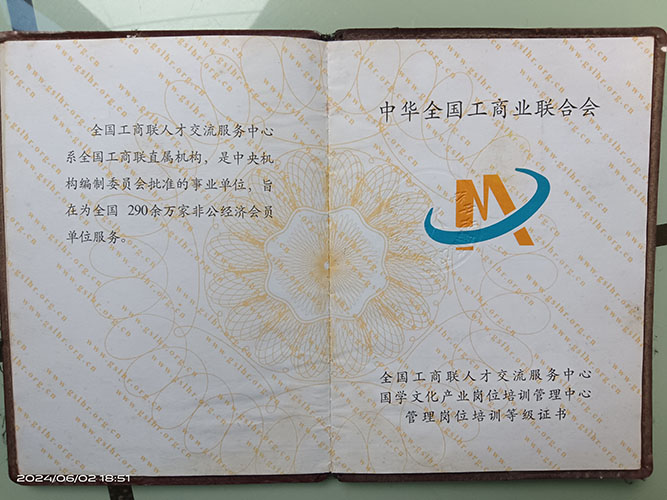 全国工商联人才交流服务中心
系全国工商联直属机构，是中央机
构编制委员会批准的事业单位，旨
在为全国 290余万家非公经济会员
单位服务。
中华全国工商业联合会
M
全国工商联人才交流服务中心
国学文化产业岗位培训管理中心
管理岗位培训等级证书
www.gslhr.org.cn
2024/06/02 18:51